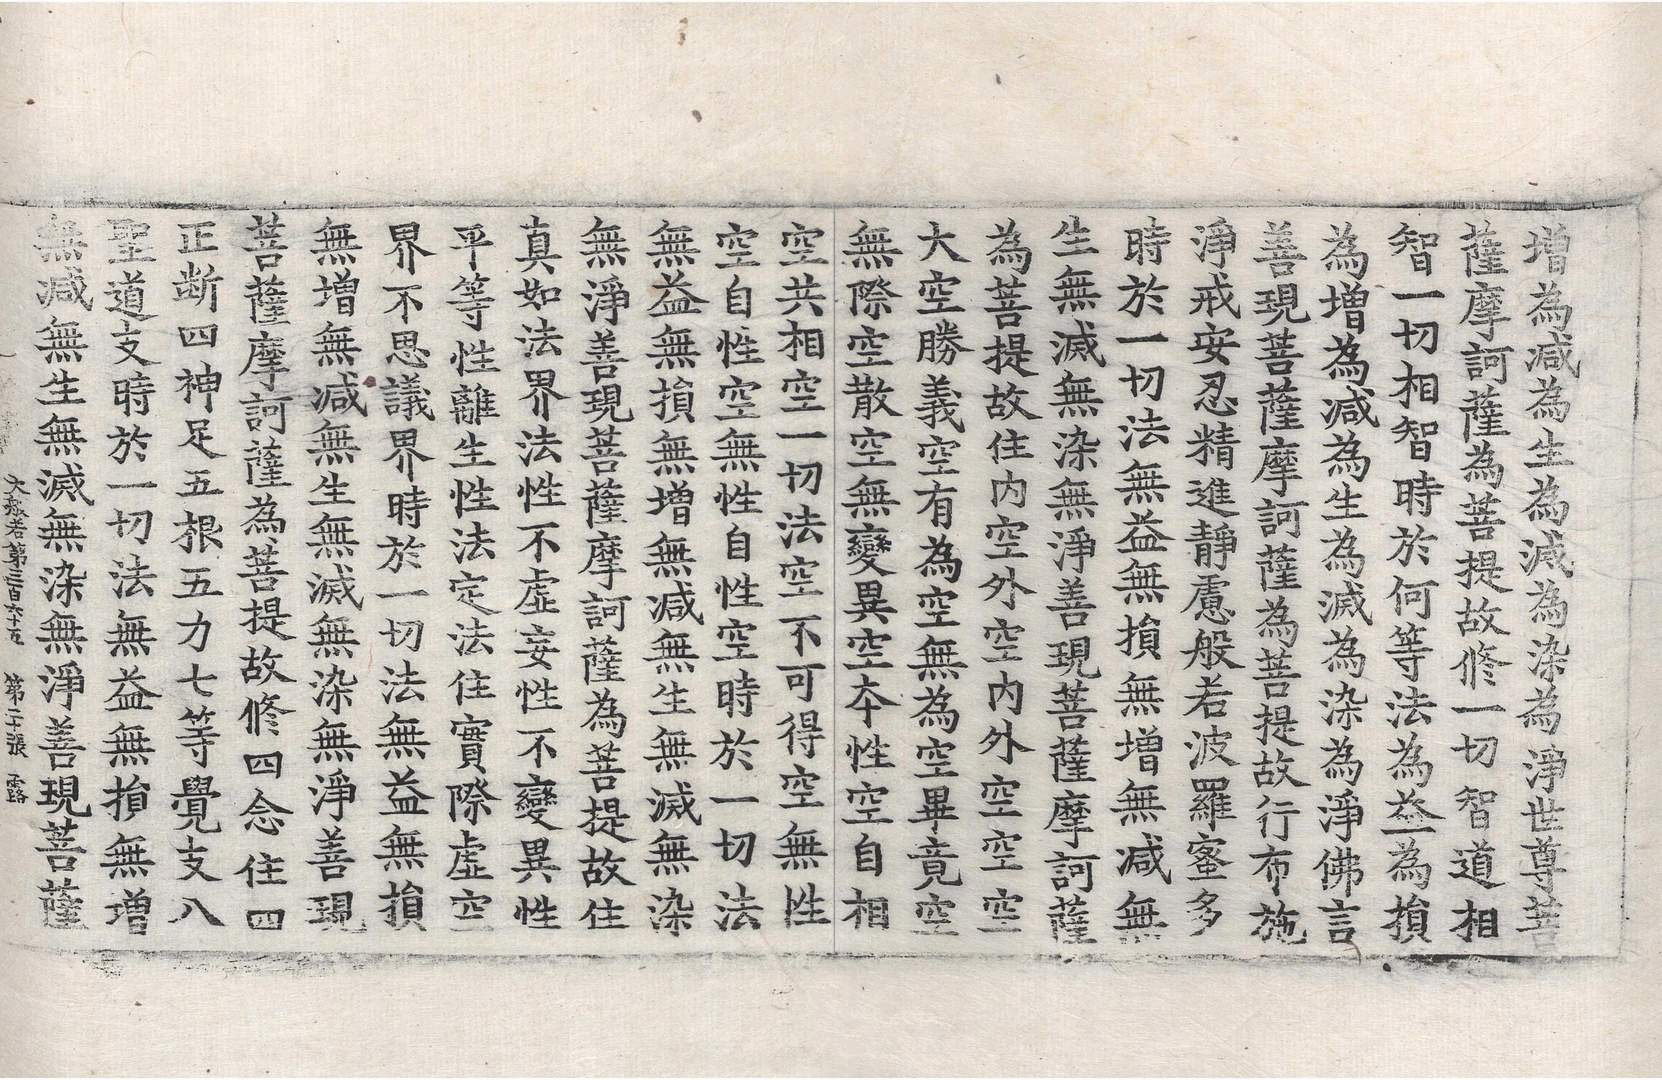 增為减為生為滅為染為淨世尊菩
薩摩訶薩為菩提故修一切智道相
智一切相智時於何等法為益為損
為增為减為生為滅為染為淨佛言
善現菩薩摩訶薩為菩提故行布施
淨戒安忍精進靜慮般若波羅蜜多
時於一切法無益無損無增無减無
生無滅無染無淨善現菩薩摩訶薩
為菩提故住內空外空內外空空空
大空勝義空有為空無為空畢竟空
無際空散空無變異空本性空自相
空共相空一切法空不可得空無性
空自性空無性自性空時於一切法
無益無損無增無减無生無滅無染
無淨善現菩薩摩訶薩為菩提故住
真如法界法性不虛妄性不變異性
平等性離生性法定法住實際虛空
界不思議界時於一切法無益無損
無增無减無生無滅無染無淨善現
菩薩摩訶薩為菩提故修四念住四
正断四神足五根五力七等覺支八
聖道支時於一切法無益無損無增
無减無生無滅無染無淨善現菩薩
大般若第三百六十五 第二十張 露